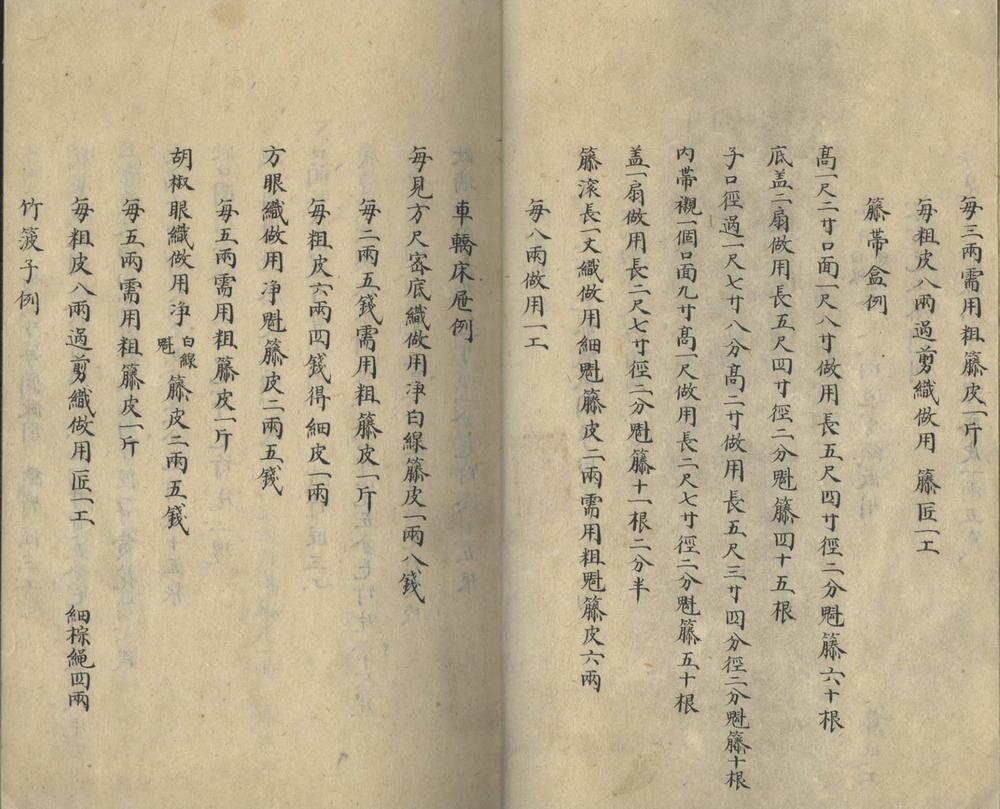 每三兩需用粗籐皮一斤
每粗皮八兩過剪織做用籐匠一工
籐帶盒例
高一尺二寸口面一尺八寸做用長五尺四寸徑二分魁籐六十根
底盖二扇做用長五尺四寸徑二分魁籐四十五根
子口徑過一尺七寸八分高二寸做用長五尺三寸四分徑二分魁籐十根
内帶襯一個口面九寸高一尺做用長二尺七寸徑二分魁籐五十根
盖一扇做用長二尺七寸徑二分魁籐十一根二分半
籐滚長一丈織做用細魁籐皮二兩需用粗魁籐皮六兩
每八兩做用一工
車轎床屉例
每見方尺宻底織做用净白線籐皮一兩八錢
每二兩五錢需用粗籐皮一斤
每粗皮六兩四錢得細皮一兩
方眼織做用净魁籐皮二兩五錢
每五兩需用粗籐皮一斤
胡椒眼織做用净白線魁籐皮二兩五錢
每五兩需用粗籐皮一斤
每粗皮八兩過剪織做用匠一工 細棕繩四兩
竹箥子例